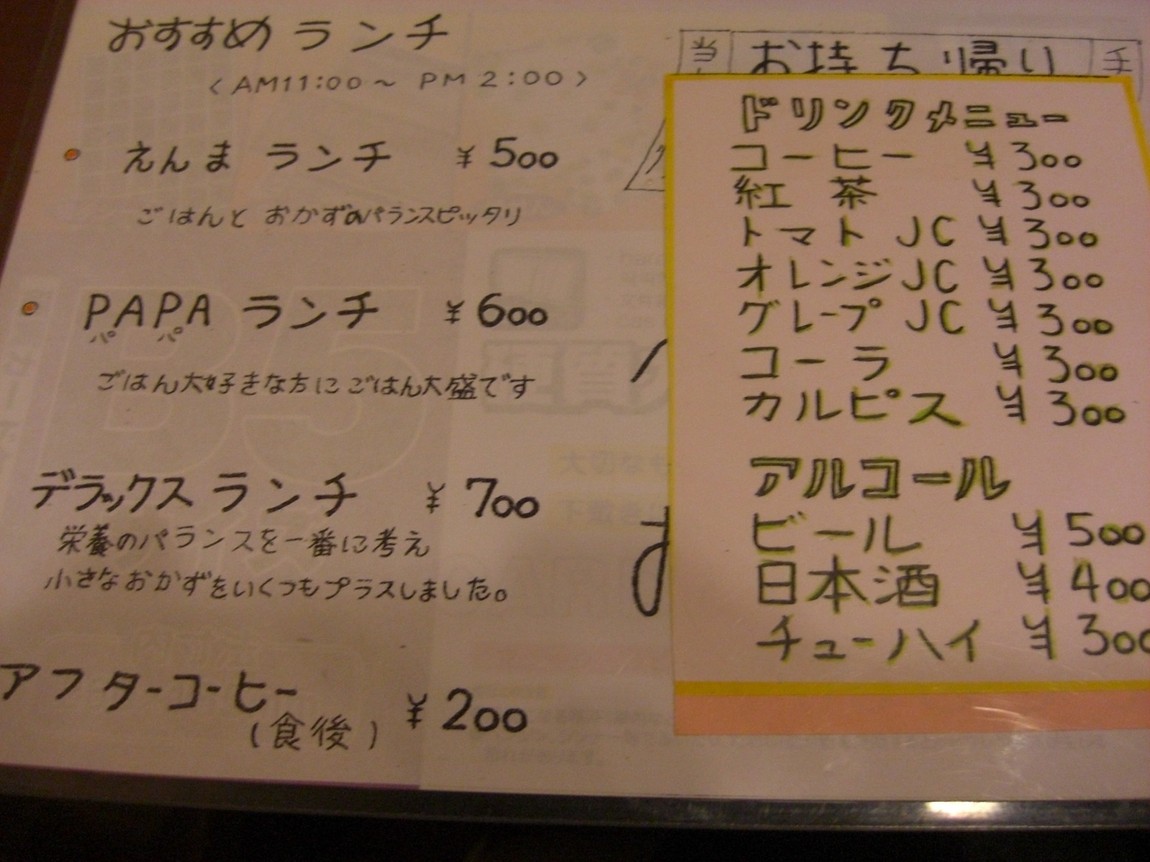 おすすめ ランチ
〈 AM11:00 ~ PM 2:00 〉
えんま ランチ ¥500
ごはんと おかずのバランスピッタリ
PAPA ランチ ¥600
パ パ
ごはん大好きな方に ごはん大盛です
デラックス ランチ ¥700
栄養のバランスを一番に考え
小さなおかずをいくつもプラスしました。
アフターコーヒー ¥200
(食後)
お持ち帰り
ドリンクメニュー
コーヒー ¥300
紅 茶 ¥300
トマト JC ¥300
オレンジ JC ¥300
グレープ JC ¥300
コーラ ¥300
カルピス ¥300
アルコール
ビール ¥500
日本酒 ¥400
チューハイ ¥300